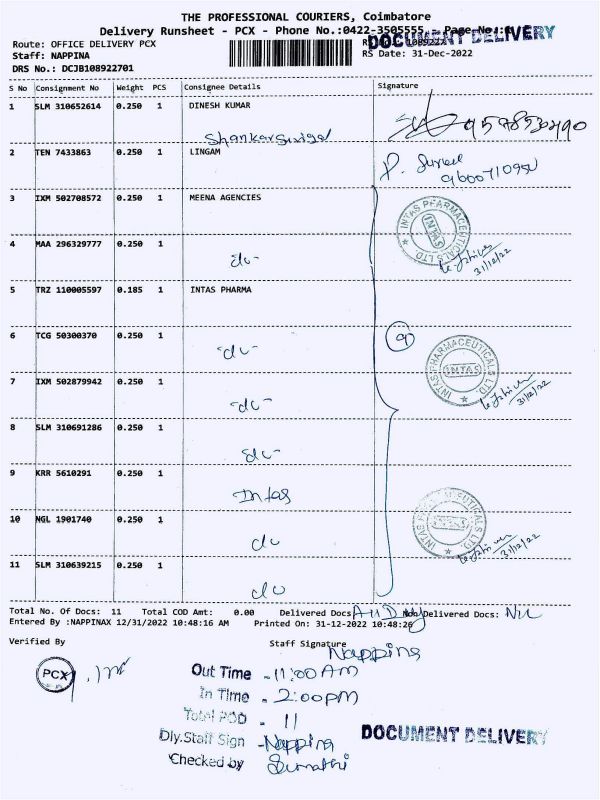 THE PROFESSIONAL COURIERS, Coimbatore
Delivery Runsheet - PCX - Phone No.:0422-3505555
DOCUMENT DELIVERY
Route: OFFICE DELIVERY PCX
Staff: NAPPINA RS Date: 31-Dec-2022
DRS No.: DCJB108922701
S No Consignment No Weight PCS Consignee Details Signature
1 SLM 310652614 0.250 1 DINESH KUMAR
2 TEN 7433863 0.250 1 LINGAM
3 IXM 502708572 0.250 1 MEENA AGENCIES
INTAS PHARMACEUTICALS LTD.
INTAS
31/12/22
4 MAA 296329777 0.250 1 -do-
5 TRZ 110005597 0.185 1 INTAS PHARMA
6 TCG 50300370 0.250 1 -do-
9
INTAS PHARMACEUTICALS LTD.
INTAS
31/12/22
7 IXM 502879942 0.250 1 -do-
8 SLM 310691286 0.250 1 do-
9 KRR 5610291 0.250 1 Intas
INTAS PHARMACEUTICALS LTD.
INTAS
31/12/22
10 NGL 1901740 0.250 1 do
11 SLM 310639215 0.250 1 do
Total No. Of Docs: 11 Total COD Amt: 0.00 Delivered Docs Non Delivered Docs: Nil
Entered By :NAPPINAX 12/31/2022 10:48:16 AM Printed On: 31-12-2022 10:48:26
Verified By Staff Signature
Nappina
PCX
Out Time - 11:00 AM
In Time - 2:00 PM
Total POD - 11
Dly.Staff Sign - Nappina
DOCUMENT DELIVERY
Checked by Sumathi